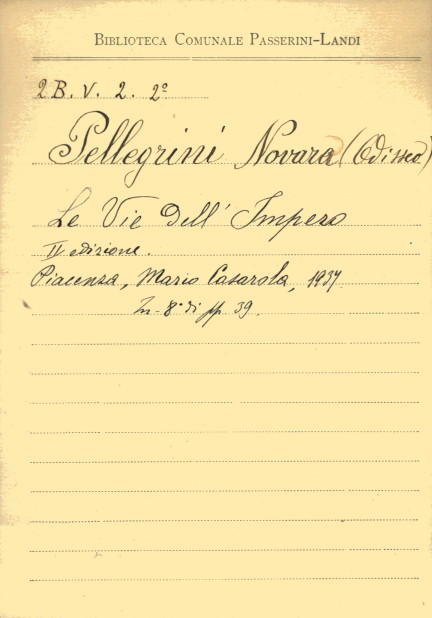 BIBLIOTECA COMUNALE PASSERINI-LANDI
2 B. V. 2. 2º
Pellegrini Novara (Odisseo)
Le Vie dell' Impero
II edizione.
Piacenza, Mario Casarola, 1937.
In-8° di pp. 39.